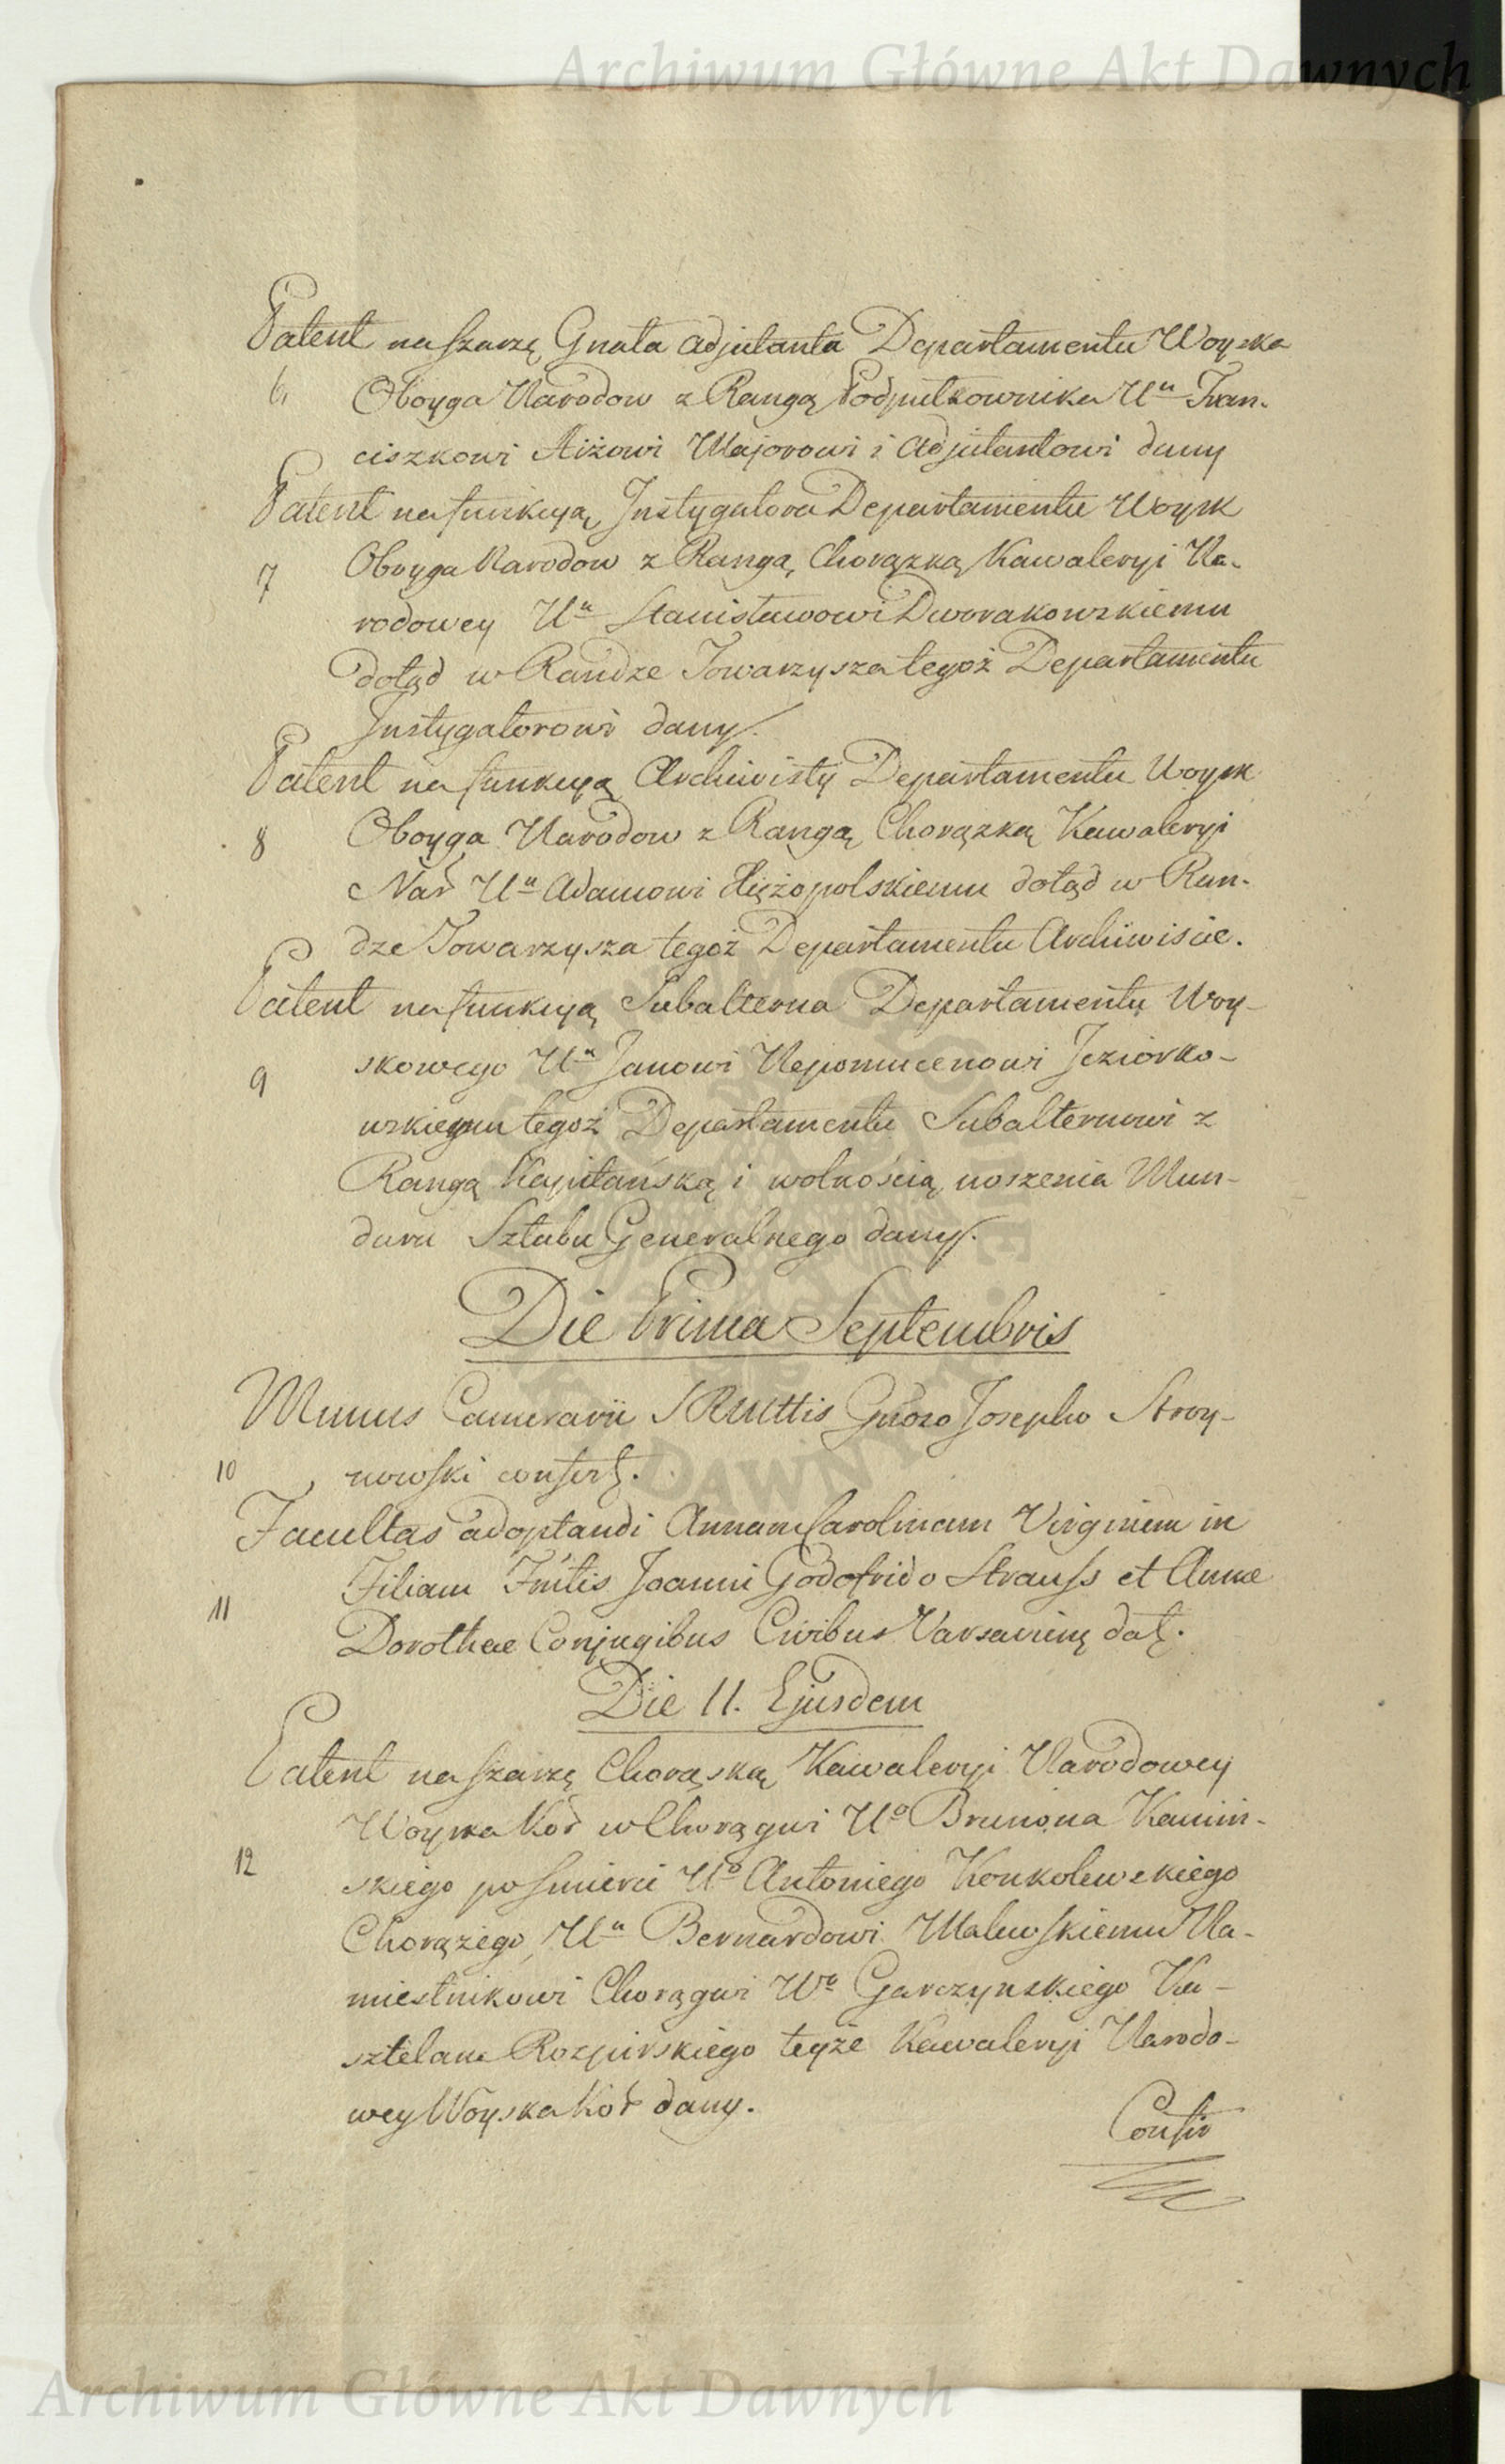 Archiwum Główne Akt Dawnych
Patent na szarżę Gnała Adjutanta Departamentu Woyska
6. Oboyga Narodow z Rangą Podpułkownika Uu Fran-
ciszkowi Majorowi i Adjutantowi dany
Patent na funkcyą Instygatora Departamentu Woysk
7 Oboyga Narodow z Rangą Chorążką Kawaleryi Na-
rodowey Uu Stanisławowi Dworakowskiemu
dotąd w Randze Towarzysza tegoż Departamentu
Instygatorowi dany.
Patent na funkcyą Archiwisty Departamentu Woysk
8 Oboyga Narodow z Rangą Chorązką Kawaleryi
Nar Uu Adamowi dotąd w Ran-
dze Towarzysza tegoż Departamentu Archiwiscie.
Patent na funkcyą Subalterna Departamentu Woy-
9 skowego Uu Janowi Nepomucenowi Jeziorko-
wskiemu tegoż Departamentu Subalternowi z
Rangą Kapitańską i wolnością noszenia Mun-
duru Sztabu Generalnego dany.
Die Prima Septembris
Munus Camerarii SRMttis Gnoso Josepho Stroy-
10 nowski confert.
Facultas adoptandi Annam Carolinam Virginem in
11 Filiam Fmtis Joanni Godofrido Strauss et Annae
Dorothae Conjugibus Civibus Varsavien dat.
Die 11. Ejusdem
Patent na szarżę Chorąską Kawaleryi Narodowey
Woyska Kor w Chorągwi Uo Brunona Kamin-
12 skiego po smierci Uo Antoniego Konkolewskiego
Chorążego, Uu Bernardowi Malewskiemu Na-
miestnikowi Chorągwi Wo Garczynskiego Ka-
sztelana Rozpirskiego teyże Kawaleryi Narodo-
wey Woyska Kor dany.
Archiwum Główne Akt Dawnych